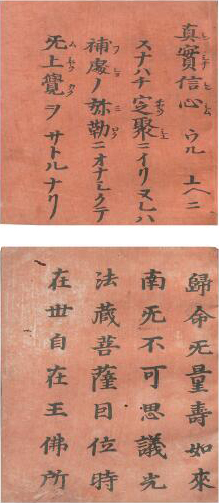 真實信心ウルユヘニ
スナハチ定聚ニイリヌレハ
補處ノ弥勒ニオナシクテ
无上覺ヲサトルナリ
歸命无量壽如來
南无不可思議光
法藏菩薩因位時
在世自在王佛所